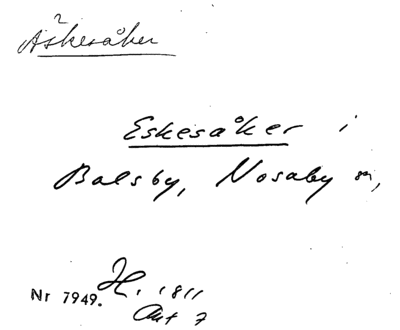 ?
Äskesåker
Eskesåker i
Balsby, Nosaby sn,
Nr 7949. H. 1811
Akt 7